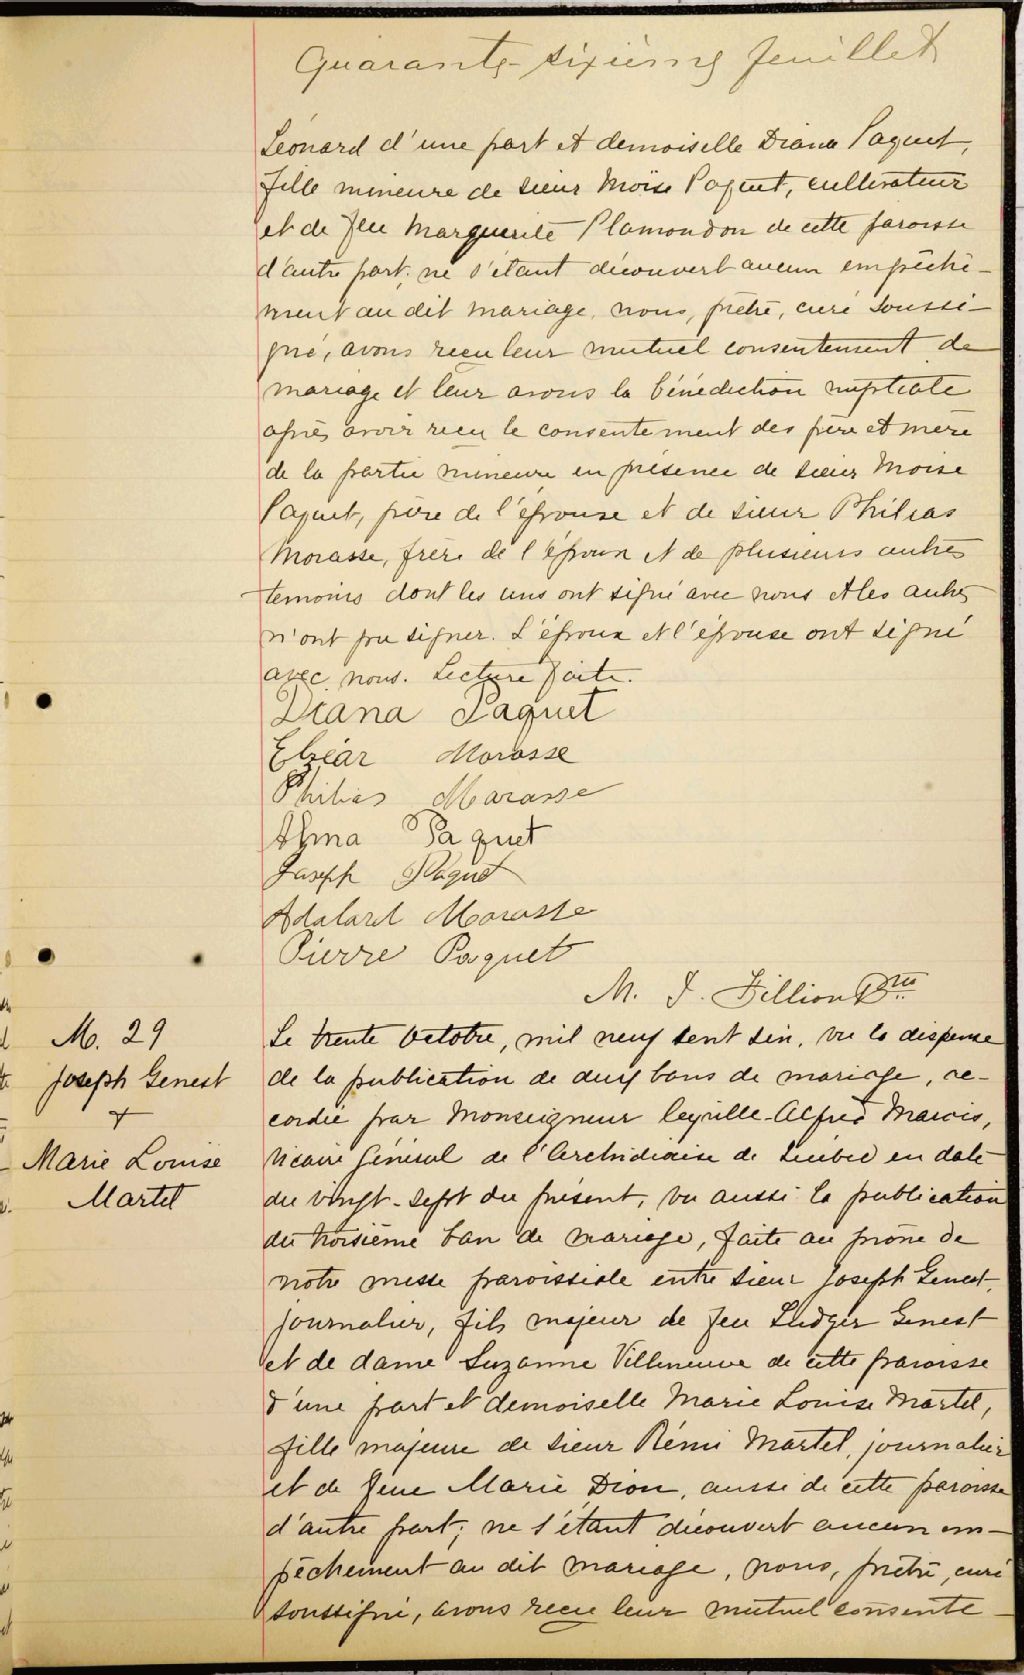 Quarante-sixième feuillet
Léonard d'une part et demoiselle Diana Paquet,
fille mineure de sieur Moïse Paquet, cultivateur
et de feu Marguerite Plamondon de cette paroisse
d'autre part; ne s'étant découvert aucun empêche-
ment au dit mariage, nous, prêtre, curé soussi-
gné, avons reçu leur mutuel consentement de
mariage et leur avons la bénédiction nuptiale
après avoir reçu le consentement des père et mère
de la partie mineure en présence de sieur Moïse
Paquet, père de l'épouse et de sieur Philias
Morasse, frère de l'époux et de plusieurs autres
témoins dont les uns ont signé avec nous et les autres
n'ont pu signer. L'époux et l'épouse ont signé
avec nous. Lecture faite.
Diana Paquet
Elzéar Morasse
Philias Marasse
Alma Paquet
Joseph Paquet
Adalard Morasse
Pierre Paquet
M. J. Fillion Ptre
M. 29
Joseph Genest
+
Marie Louise
Martel
Le trente Octobre, mil neuf cent six, vu la dispense
de la publication de deux bans de mariage, ac-
cordée par Monseigneur Cyrille-Alfred Marois,
Vicaire Général de l'Archidiocèse de Québec en date
du vingt-sept du présent, vu aussi la publication
du troisième ban de mariage, faite au prône de
notre messe paroissiale entre sieur Joseph Genest,
journalier, fils majeur de feu Ludger Genest
et de dame Suzanne Villeneuve de cette paroisse
d'une part et demoiselle Marie Louise Martel,
fille majeure de sieur Rémi Martel, journalier
et de feue Marie Dion, aussi de cette paroisse
d'autre part; ne s'étant découvert aucun em-
pêchement au dit mariage, nous, prêtre, curé
soussigné, avons reçu leur mutuel consente-